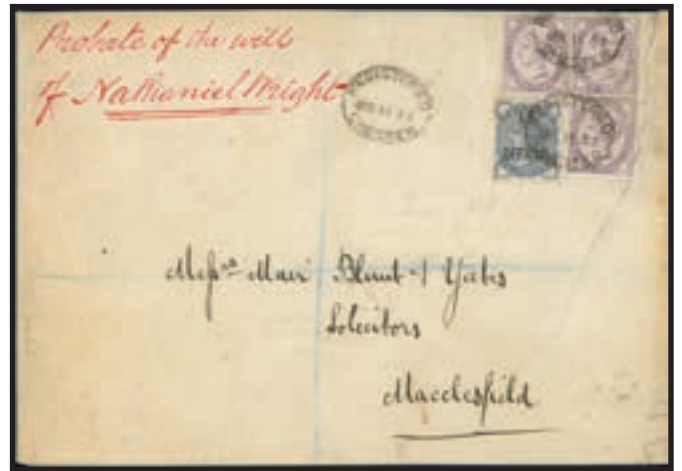 Probate of the will
of Nathaniel Wright
REGISTERED
OFFICIAL
Mess<sup>rs</sup> Mair Blunt & Yates
Solicitors
Macclesfield